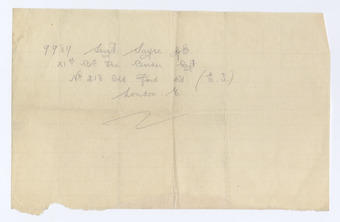 9934 Sergt Sayre G B
21st Bt The Buren Rgt
No 218 Old Ford Rd (E. 3.)
London E